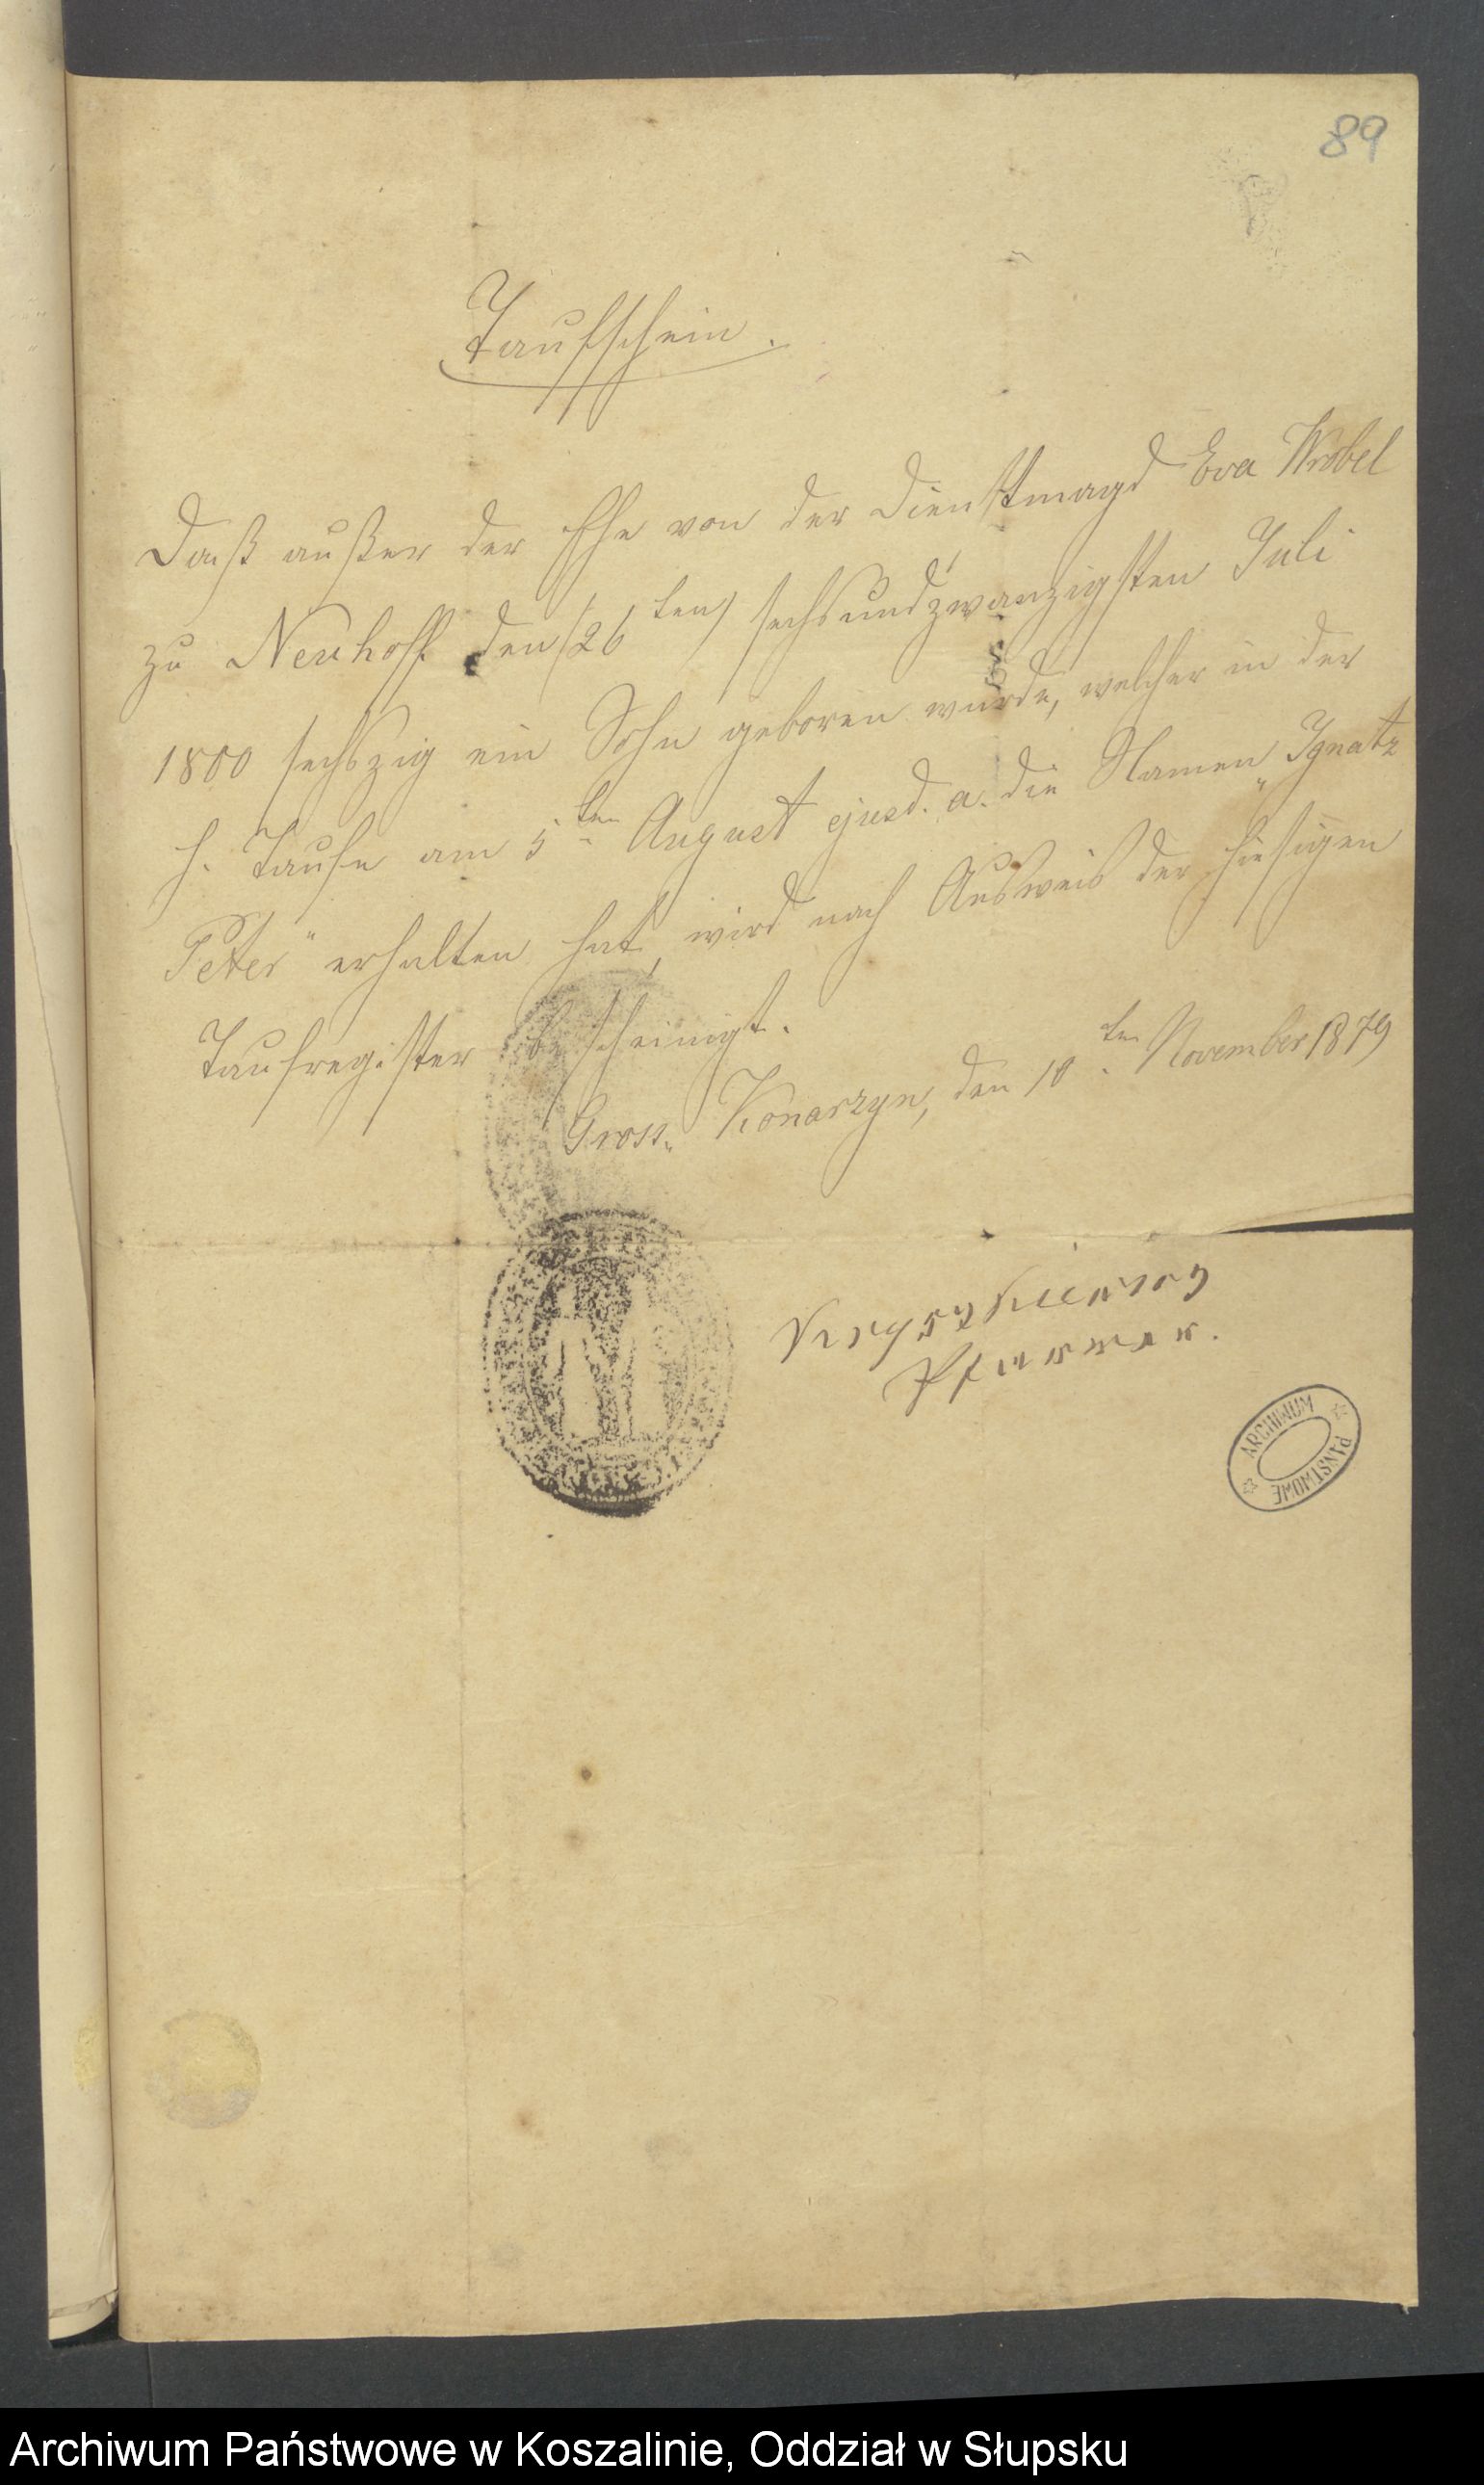 89
Taufschein.
Daß außer der Ehe von der Dienstmagd Eva Wrobel
zu Neuhoff den (26ten) sechsundzwanzigsten Juli
1800 sechszig ein Sohn geboren wurde, welcher in der
h. Taufe am 5ten August ejusd. a. die Namen „Ignatz
Peter" erhalten hat, wird nach Ausweis der hiesigen
Taufregister bescheinigt.
Gross„ Konarzyn, den 10ten November 1879
Pfarrer.
ARCHIWUM PAŃSTWOWE
Archiwum Państwowe w Koszalinie, Oddział w Słupsku